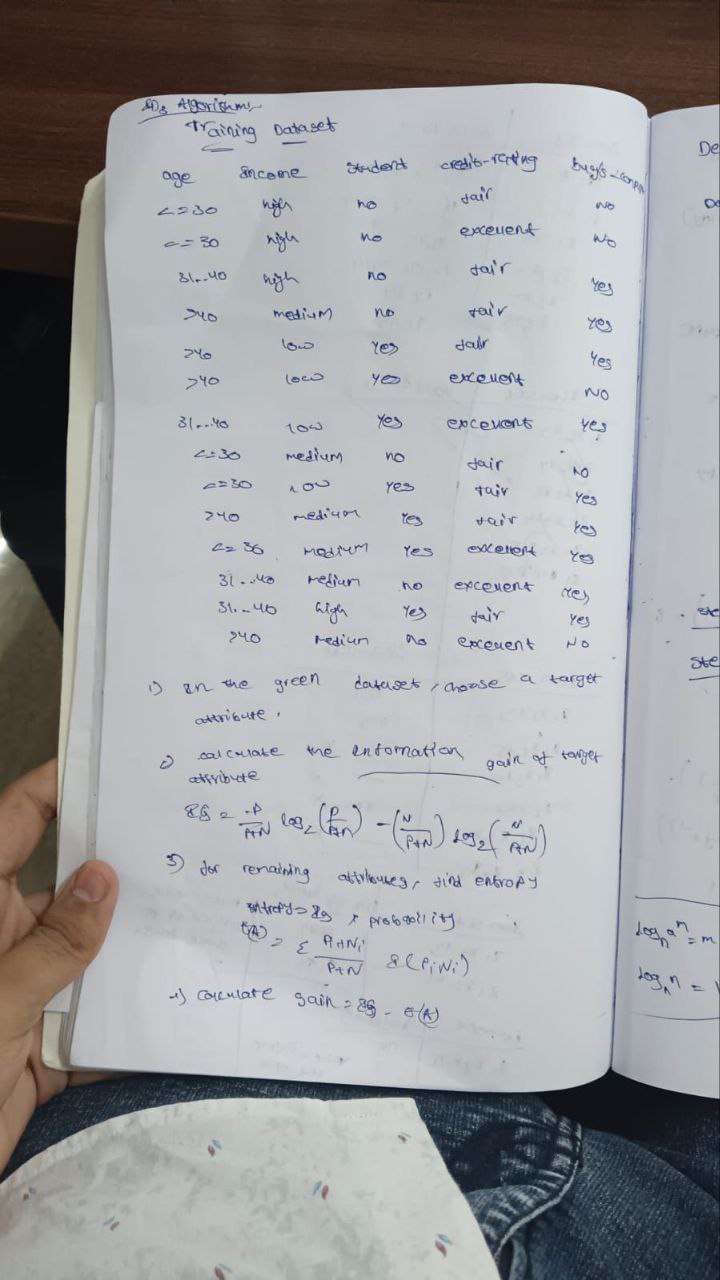 ID3 Algorithm:-
Training Dataset
age income student credit-rating buys-comp
<=30 high no fair NO
<=30 high no excellent No
31..40 high no fair Yes
>40 medium no fair Yes
>40 low Yes fair Yes
>40 low Yes excellent NO
31..40 low Yes excellent Yes
<=30 medium no fair NO
<=30 low Yes fair Yes
>40 medium Yes fair Yes
<=30 medium Yes excellent Yes
31..40 medium no excellent Yes
31..40 high Yes fair Yes
>40 medium no excellent NO
1) In the green dataset, choose a target
attribute.
2) calculate the information gain of target
attribute
IG = -P/P+N log2 (P/P+N) - (N/P+N) log2 (N/P+N)
3) for remaining attributes, find entropy
entropy = IG * probability
E(A) = Σ Pi+Ni/P+N I(PiNi)
4) calculate gain = IG - E(A)
De
ste
Ste
logn a^n = m
logn n = 1